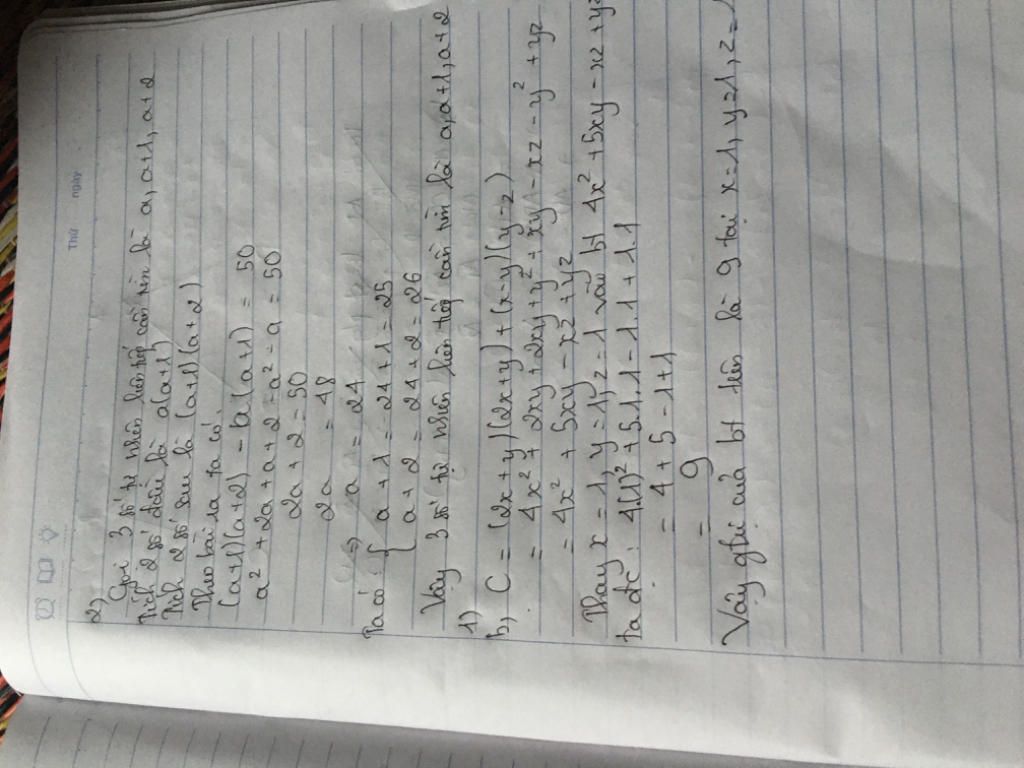 Thứ ngày
2)
Gọi 3 số tự nhiên liên tiếp cần tìm là a, a+1, a+2
Tích 2 số đầu là a(a+1)
Tích 2 số sau là (a+1)(a+2)
Theo bài ra ta có:
(a+1)(a+2) - a(a+1) = 50
a² + 2a + a + 2 - a² - a = 50
2a + 2 = 50
2a = 48
⇒ a = 24
Ta có: { a + 1 = 24 + 1 = 25
a + 2 = 24 + 2 = 26
Vậy 3 số tự nhiên liên tiếp cần tìm là a, a+1, a+2
1)
b, C = (2x+y)(2x+y) + (x-y)(y-z)
= 4x² + 2xy + 2xy + y² + xy - xz - y² + yz
= 4x² + 5xy - xz + yz
Thay x = 1, y = 1, z = 1 vào bt 4x² + 5xy - xz + yz
ta đc: 4(1)² + 5.1.1 - 1.1 + 1.1
= 4 + 5 - 1 + 1
= 9
Vậy gtrị của bt trên là 9 tại x = 1, y = 1, z =